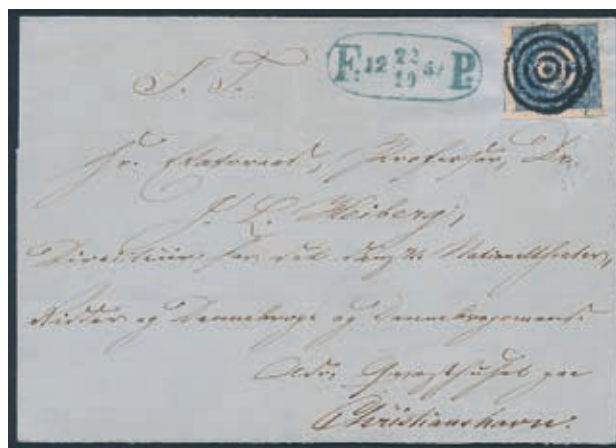 F: 12 22/10 51 P:
S. T.
Hr. Etatsraad, Professor, Dr.
J. L. Heiberg,
Directeur for det danske Nationaltheater,
Ridder af Dannebroge og Dannebrogsmand.
Adr.
Christianshavn.